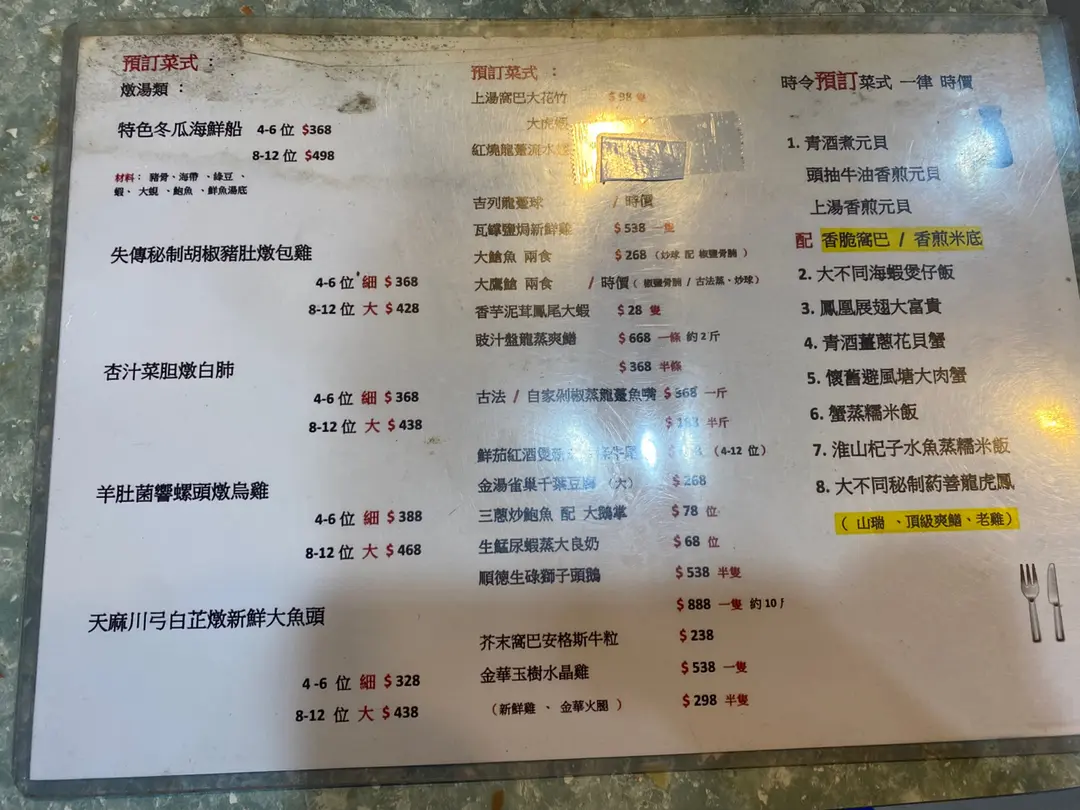 預訂菜式：
燉湯類：
特色冬瓜海鮮船 4-6 位 $368
8-12 位 $498
材料：豬骨、海帶、綠豆、
蝦、大蜆、鮑魚、鮮魚湯底
失傳秘制胡椒豬肚燉包雞
4-6 位 細 $368
8-12 位 大 $428
杏汁菜胆燉白肺
4-6 位 細 $368
8-12 位 大 $438
羊肚菌響螺頭燉烏雞
4-6 位 細 $388
8-12 位 大 $468
天麻川弓白芷燉新鮮大魚頭
4-6 位 細 $328
8-12 位 大 $438
預訂菜式：
上湯窩巴大花竹 $98 隻
大虎
紅燒龍躉流水
吉列龍躉球 / 時價
瓦罉鹽焗新鮮雞 $538 一隻
大鱠魚 兩食 $268（炒球 配 椒鹽骨腩）
大鷹鱠 兩食 / 時價（椒鹽骨腩 / 古法蒸、炒球）
香芋泥茸鳳尾大蝦 $28 隻
豉汁盤龍蒸爽鱔 $668 一條 約2斤
$368 半條
古法 / 自家剁椒蒸龍躉魚嘴 $368 一斤
半斤
鮮茄紅酒煲 牛尾 （4-12 位）
金湯雀巢千葉豆腐（大） $268
三蔥炒鮑魚 配 大鵝掌 $78 位
生鯭尿蝦蒸大良奶 $68 位
順德生碌獅子頭鵝 $538 半隻
$888 一隻 約10
芥末窩巴安格斯牛粒 $238
金華玉樹水晶雞 $538 一隻
（新鮮雞、金華火腿） $298 半隻
時令預訂菜式 一律 時價
1. 青酒煮元貝
頭抽牛油香煎元貝
上湯香煎元貝
配 香脆窩巴 / 香煎米底
2. 大不同海蝦煲仔飯
3. 鳳凰展翅大富貴
4. 青酒薑蔥花貝蟹
5. 懷舊避風塘大肉蟹
6. 蟹蒸糯米飯
7. 淮山杞子水魚蒸糯米飯
8. 大不同秘制葯善龍虎鳳
（山瑞、頂級爽鱔、老雞）